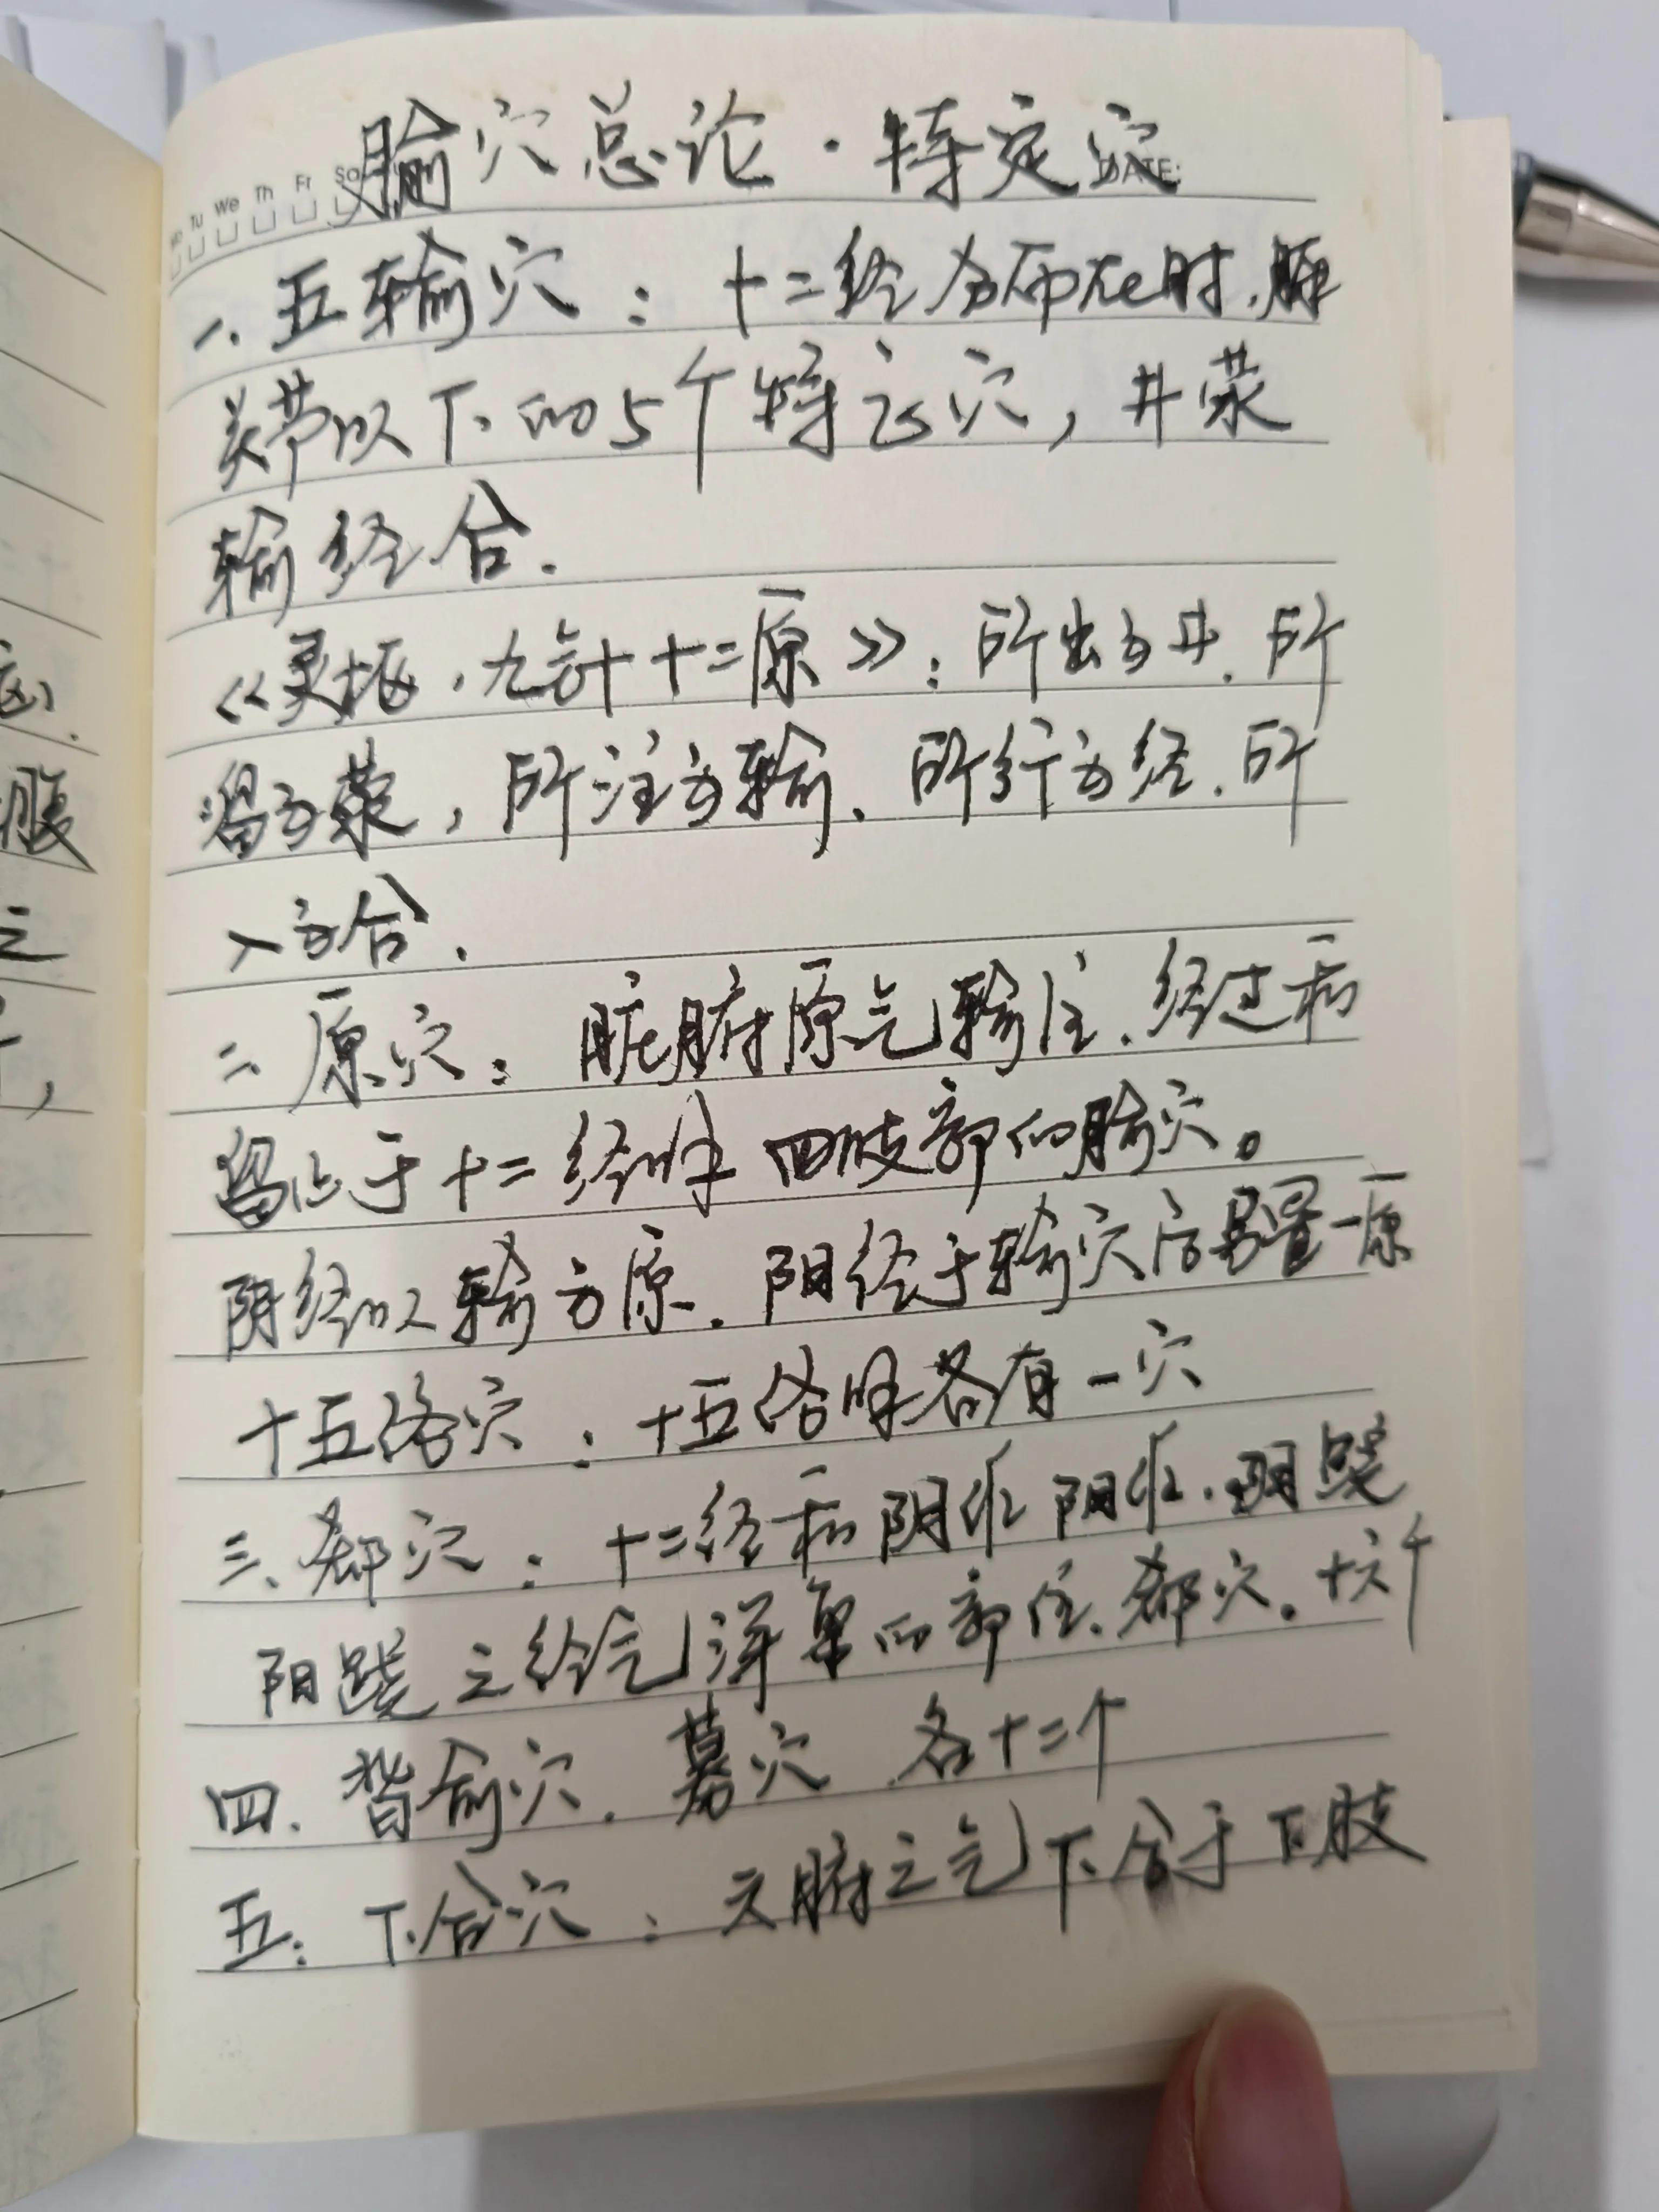 腧穴总论·特定穴
Mo Tu We Th Fr Sa DATE:
一.五输穴：十二经分布在肘.膝
关节以下的5个特定穴，井荥
输经合.
《灵枢.九针十二原》：所出为井.所
溜为荥，所注为输.所行为经.所
入为合.
二.原穴：脏腑原气输注.经过和
留止于十二经脉四肢部的腧穴。
阴经以输为原.阳经于输穴后另置一原
十五络穴：十五络脉各有一穴
三、郄穴：十二经和阴维阳维.阴跷
阳跷之经气深聚的部位.郄穴。十六个
四.背俞穴.募穴.各十二个
五：下合穴：六腑之气下合于下肢